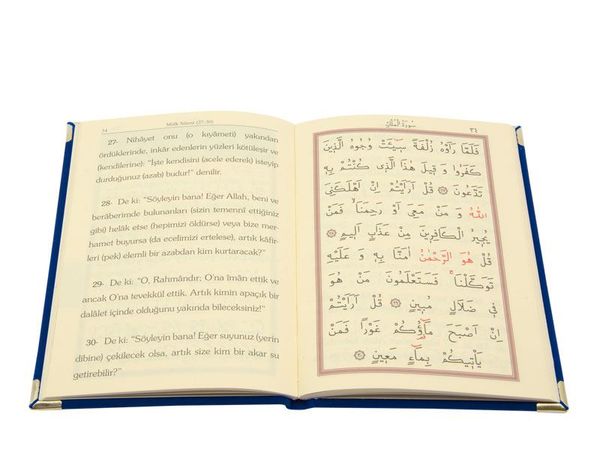 34
Mülk Sûresi (27-30)
27- Nihâyet onu (o kıyameti) yakından
ördüklerinde, inkâr edenlerin yüzleri kötüleşir ve
(kendilerine): “İşte kendisini (acele ederek) isteyip
durduğunuz (azab) budur!” denilir.
28- De ki: “Söyleyin bana! Eğer Allah, beni ve
berâberimde bulunanları (sizin temenni ettiğiniz
gibi) helâk etse (hepimizi öldürse) veya bize mer-
hamet buyursa (da ecelimizi ertelese), artık kâfir-
leri (pek) elemli bir azabdan kim kurtaracak?”
29- De ki: “O, Rahmândır; O'na îman ettik ve
ancak O'na tevekkül ettik. Artık kimin apaçık bir
dalâlet içinde olduğunu yakında bileceksiniz!”
30- De ki: “Söyleyin bana! Eğer suyunuz (yerin
dibine) çekilecek olsa, artık size kim bir akar su
getirebilir?”
سُورَةُ الْمُلْكِ
٣٤
فَلَمَّا رَاَوْهُ زُلْفَةً سٖٓيـَٔتْ وُجُوهُ الَّذٖينَ
كَفَرُوا وَ قٖيلَ هٰذَا الَّذٖى كُنْتُمْ بِهٖ
تَدَّعُونَ ۞ قُلْ اَرَاَيْتُمْ اِنْ اَهْلَكَنِىَ
اللّٰهُ وَ مَنْ مَعِىَ اَوْ رَحِمَنَاۙ فَمَنْ
يُجٖيرُ الْكَافِرٖينَ مِنْ عَذَابٍ اَلٖيمٍ ۞
قُلْ هُوَ الرَّحْمٰنُ اٰمَنَّا بِهٖ وَ عَلَيْهِ
تَوَكَّلْنَاۚ فَسَتَعْلَمُونَ مَنْ هُوَ
فٖى ضَلَالٍ مُبٖينٍ ۞ قُلْ اَرَاَيْتُمْ
اِنْ اَصْبَحَ مَٓاؤُكُمْ غَوْرًا فَمَنْ
يَاْتٖيكُمْ بِمَٓاءٍ مَعٖينٍ ۞